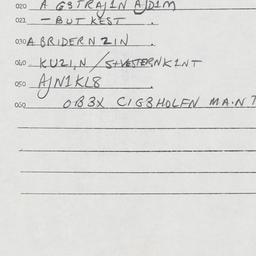 020 A GSTRAJIN AJDIM
022 - BUT KEST .
030 A BRIDERN ZIN .
040 KUZI,N / S+VESTERNKINT
050 AJNIKL8 .
060 OBBX CIGBHOLEN MA.NT